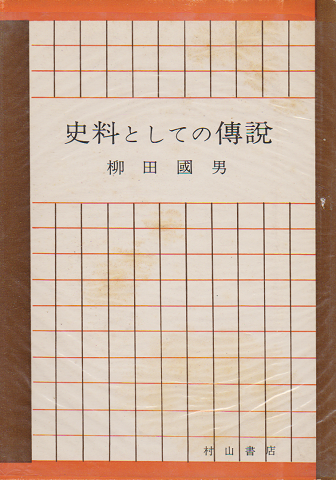 史料としての傳説
柳田國男
村山書店